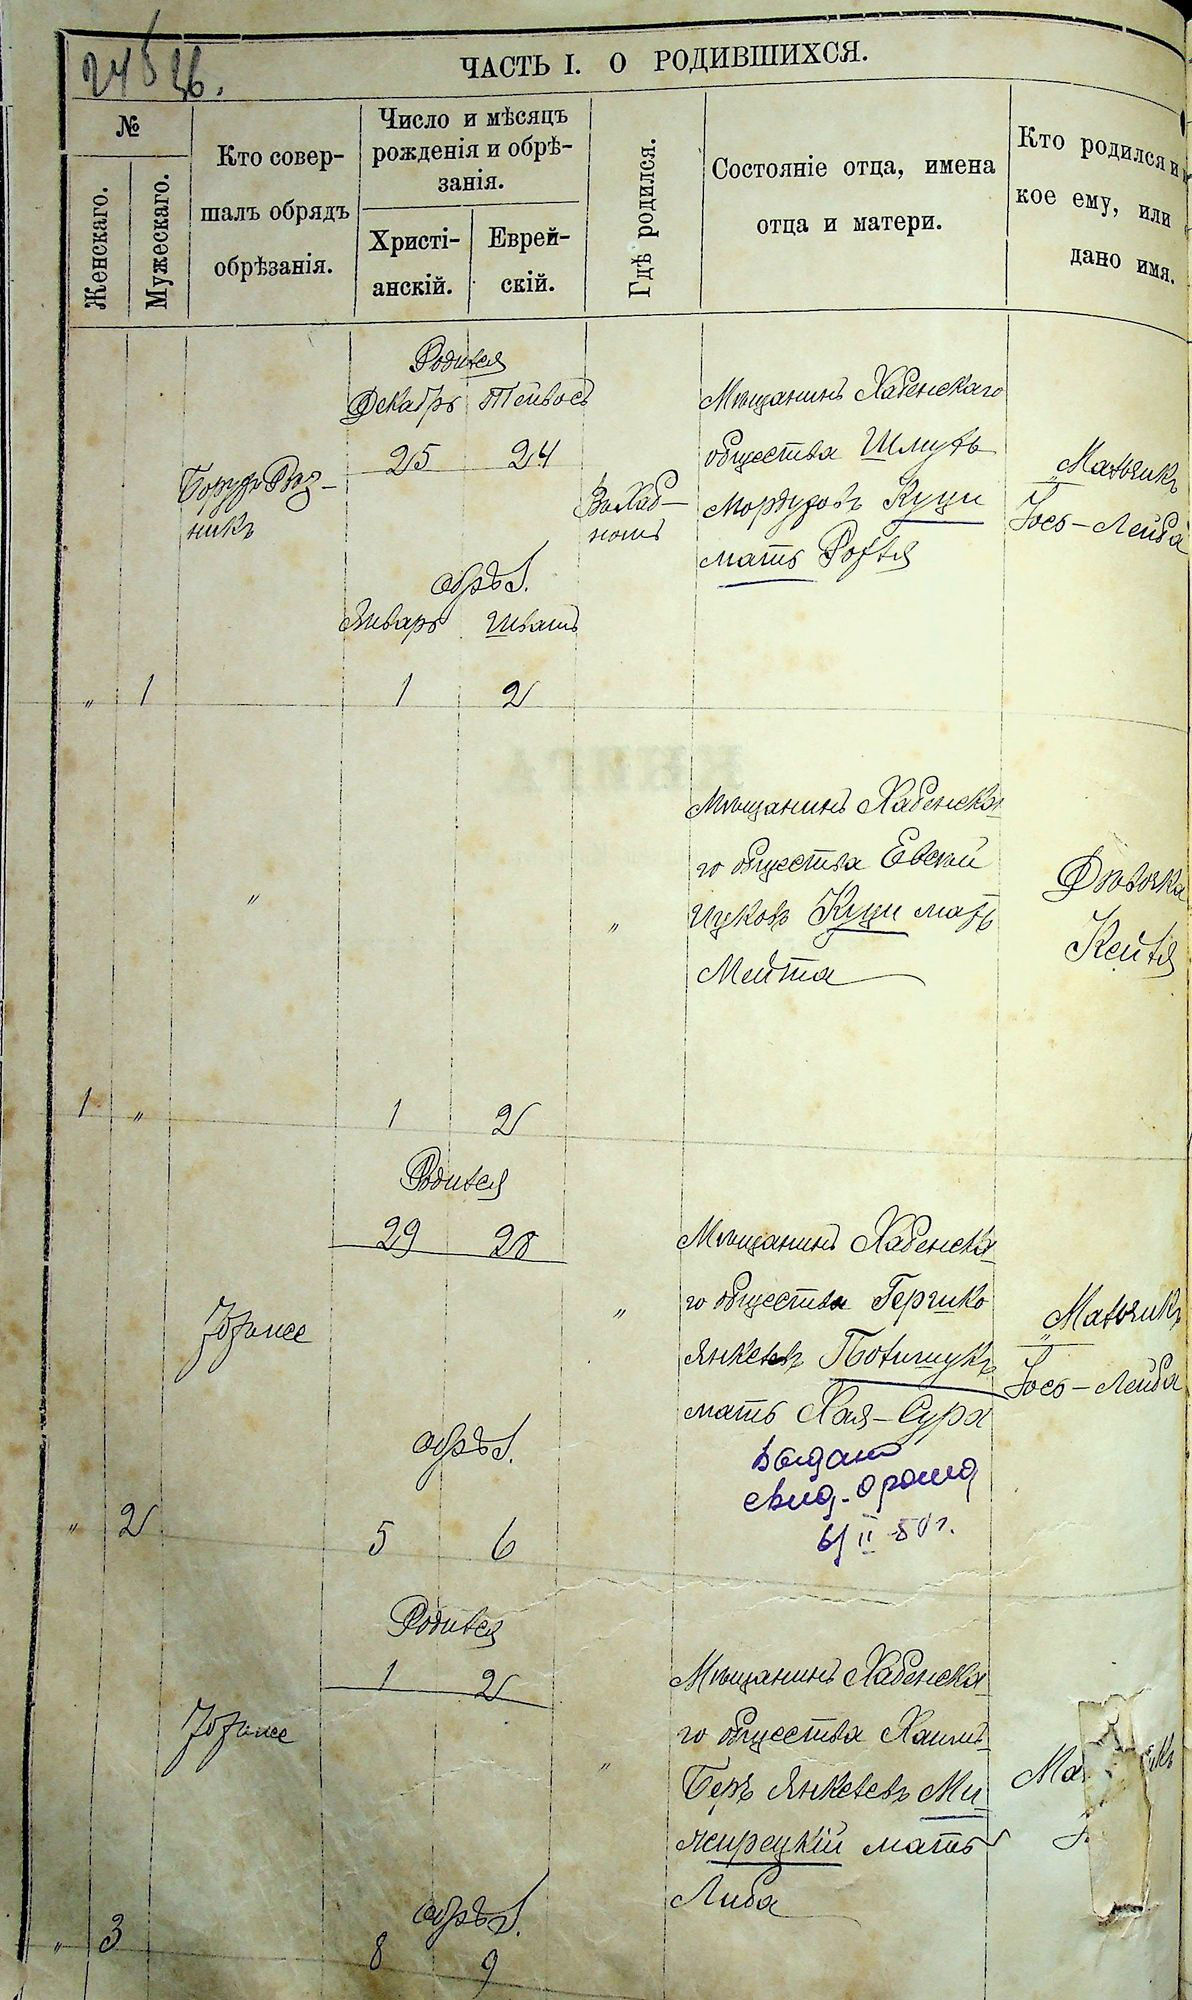 ЧАСТЬ I. О РОДИВШИХСЯ.
№
Женскаго.
Мужескаго.
Кто совер-
шалъ обрядъ
обрѣзанія.
Число и мѣсяцъ
рожденія и обрѣ-
занія.
Христі-
анскій.
Еврей-
скій.
Гдѣ родился.
Состояніе отца, имена
отца и матери.
Кто родился и
кое ему, или
дано имя.
Родился
Декабрь Тейвесъ
25 24
обрѣз.
Январь Шватъ
" 1
1 2
Мѣщанинъ Хабенскаго
общества Шмуль
Мордуховъ Куци
мать Рохля
Мальчикъ
Іось-Лейба
"
"
Мѣщанинъ Хабенска-
го общества Евсей
Ицковъ Куци мать
Мейта
Дѣвочка
Кейля
1 "
1 2
Родился
29 28
обрѣз.
" 2
5 6
"
Мѣщанинъ Хабенска-
го общества Гершко
Янкелевъ Полищукъ
мать Хая-Сура
Выдано
свид. о рожд
6/II 50 г.
Мальчикъ
Іось-Лейба
Родился
1 2
обрѣз.
" 3
8 9
"
Мѣщанинъ Хабенска-
го общества Хаимъ-
Беръ Янкелевъ Ми-
жирецкій мать
Либа